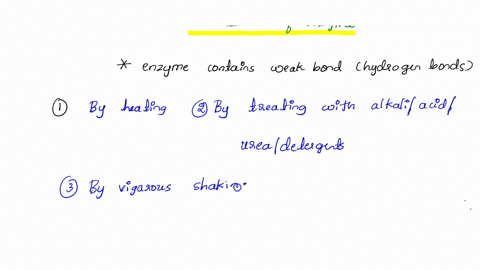 * enzyme contains weak bond (hydrogen bonds)
① By heating ② By treating with alkali/acid/
urea/detergents
③ By vigarous shakin